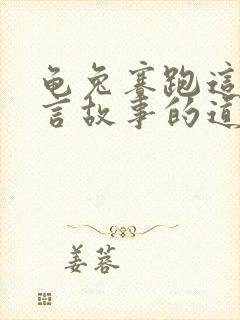 龟兔赛跑這
言故事的道
姜蓉